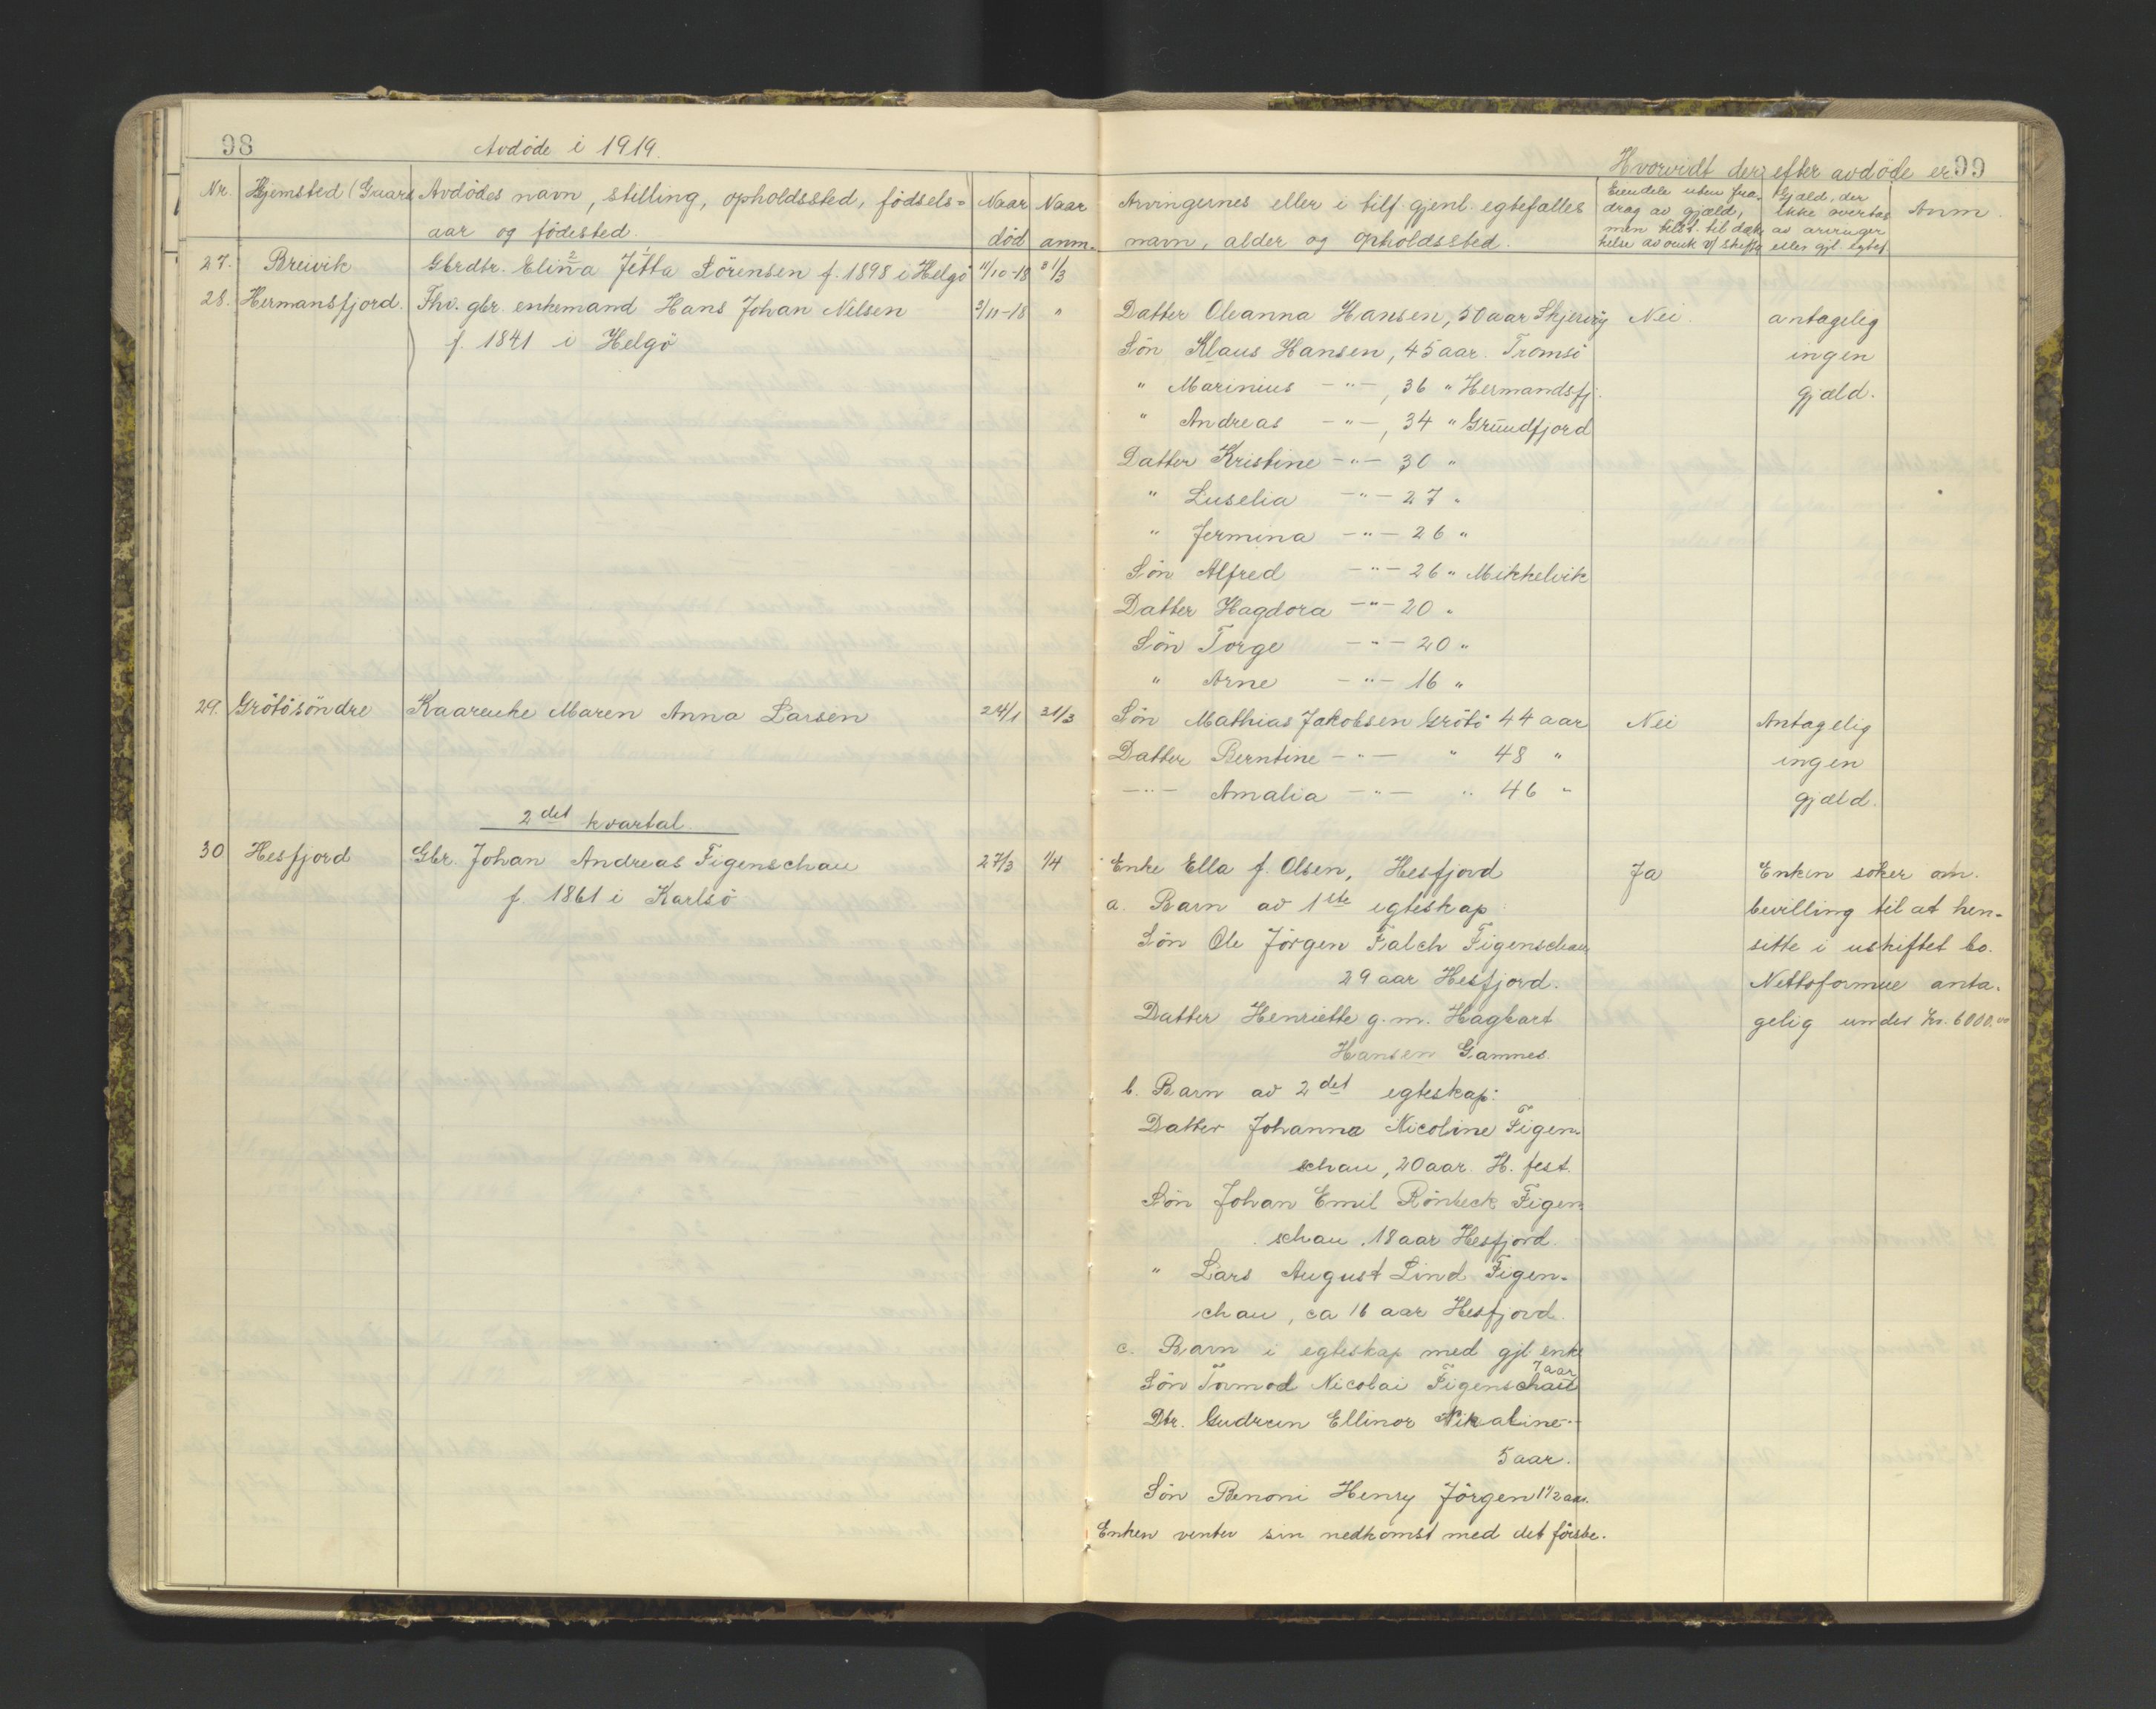 98
Avdöde i 1919.
Nr. Hjemsted (Gaard Avdödes navn, stilling, opholdssted, födsels= Naar Naar
aar og födested. död anm.
27. Breivik Gbrdtr. Elina Jetta Sörensen f. 1898 i Helgö 11/10-18 31/3
28. Hermansfjord. Fhv. gbr. enkemand Hans Johan Nilsen 3/11-18 "
f. 1841 i Helgö
29. Grötösöndre Kaarenke Maren Anna Larsen 24/1 31/3
2det kvartal.
30 Hesfjord Gbr. Johan Andreas Figenschau 27/3 1/4
f. 1861 i Karlsö
Hvorvidt der efter avdöde er 99
Arvingernes eller i tilf. gjenl. egtefælles
navn, alder og opholdssted.
Eiendele uten fra-
drag av gjæld,
Gjæld, der
ikke overtas
av arvinger
eller gjl. egtef.
Anm.
Datter Oleanna Hansen, 50 aar Skjervöy Nei. antagelig
Sön Klaus Hansen, 45 aar. Tromsö ingen
" Marinius -"-, 36 " Hermandsfj. gjæld.
" Andreas -"-, 34 " Grundfjord
Datter Kristine -"- 30 "
" Luselia -"- 27 "
" Jermina -"- 26 "
Sön Alfred -"- 26 " Mikkelvik
Datter Hagdora -"- 20 "
Sön Torge -"- 20 "
" Arne -"- 16 "
Sön Mathias Jakobsen Grötö 44 aar Nei Antagelig
Datter Berntine -"- " 48 " ingen
-"- Amalia -"- " 46 " gjæld.
Enke Ella f. Olsen, Hesfjord Ja Enken söker om
a. Barn av 1ste egteskap: bevilling til at hen-
Sön Ole Jörgen Falch Figenschau sitte i uskiftet bo.
29 aar Hesfjord. Nettoformue anta-
Datter Henriette g.m. Hagbart gelig under kr. 6000.00
Hansen Gamnes.
b. Barn av 2det egteskap:
Datter Johanna Nicoline Figen-
schau, 20 aar. H. fest.
Sön Johan Emil Rönbeck Figen-
schau, 18 aar Hesfjord.
" Lars August Lind Figen-
schau, ca 16 aar Hesfjord.
c. Barn i egteskap med gjl. enke
Sön Tormod Nicolai Figenschau 7 aar
Dtr. Gudrun Ellinor Nikaline -
5 aar.
Sön Benoni Henry Jörgen 1 1/2 aar.
Enken venter sin nedkomst med det förste.